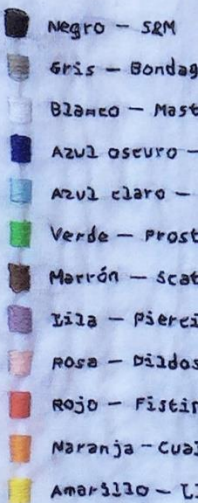 Negro – S&M
Gris – Bondag
Blanco – Mast
Azul oscuro –
Azul claro –
Verde – Prost
Marrón – Scat
Lila – Pierci
Rosa – Dildos
Rojo – Fistin
Naranja – Cual
Amarillo – Ll